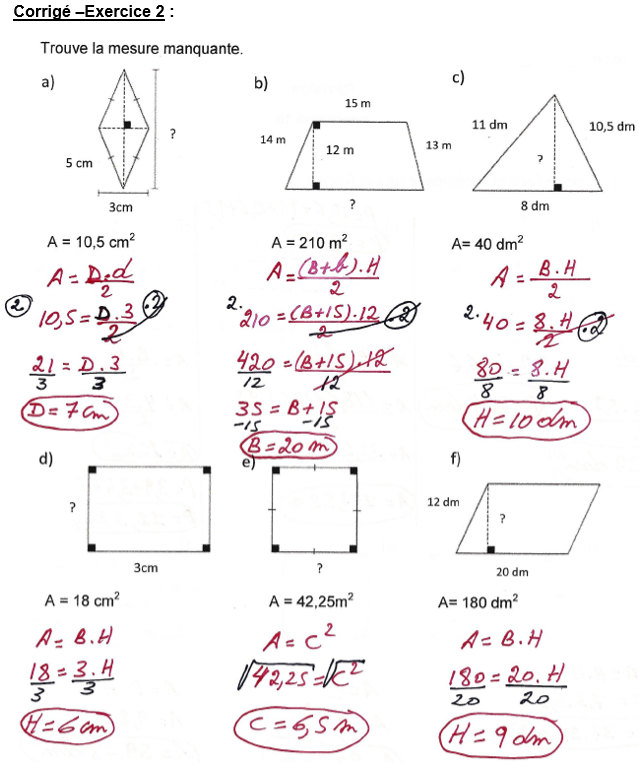 Corrigé –Exercice 2 :
Trouve la mesure manquante.
a)
?
5 cm
3cm
A = 10,5 cm²
A = D.d/2
2. 10,5 = D.3/2 .2
21/3 = D.3/3
D = 7 cm
b)
15 m
14 m
12 m
13 m
?
A = 210 m²
A = (B+b).H/2
2. 210 = (B+15).12/2 .2
420/12 = (B+15).12/12
35 = B+15
-15 -15
B = 20 m
c)
11 dm
10,5 dm
?
8 dm
A= 40 dm²
A = B.H/2
2. 40 = 8.H/2 .2
80/8 = 8.H/8
H = 10 dm
d)
?
3cm
A = 18 cm²
A = B.H
18/3 = 3.H/3
H = 6 cm
e)
?
A = 42,25m²
A = C²
√42,25 = √C²
C = 6,5 m
f)
12 dm
?
20 dm
A= 180 dm²
A = B.H
180/20 = 20.H/20
H = 9 dm